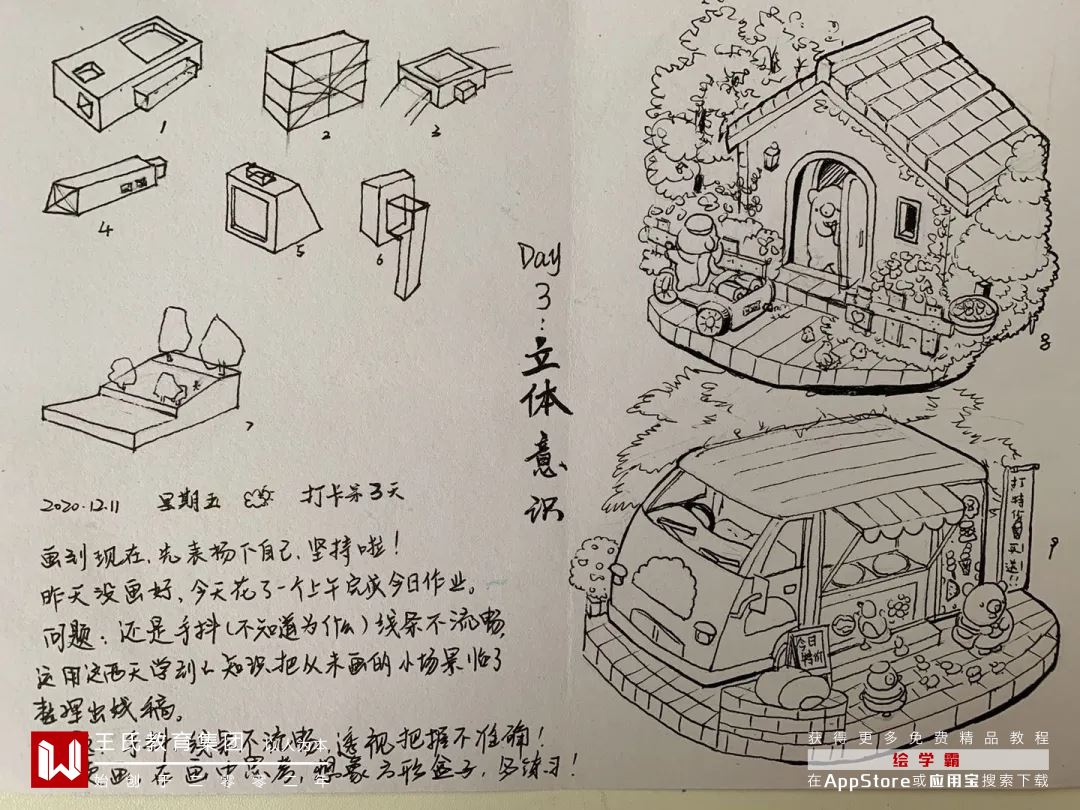 1
2
3
4
5
6
7
8
9
Day
3:
立
体
意
识
打
特
价
买
送!!
今日
特价
2020.12.11 星期五 打卡第3天
画到现在,先表扬下自己,坚持啦!
昨天没画好,今天花了一个上午完成今日作业。
问题:还是手抖(不知道为什么)线条不流畅,
运用这两天学到的知识,把从未画的小场景临了
整理出线稿。
手抖,线条不流畅,透视把握不准确!
画,在画中思考,想象方形盒子,多练习!
王氏教育集团 以人为本
始创于二零零二年
获得更多免费精品教程
绘学霸
在AppStore或应用宝搜索下载